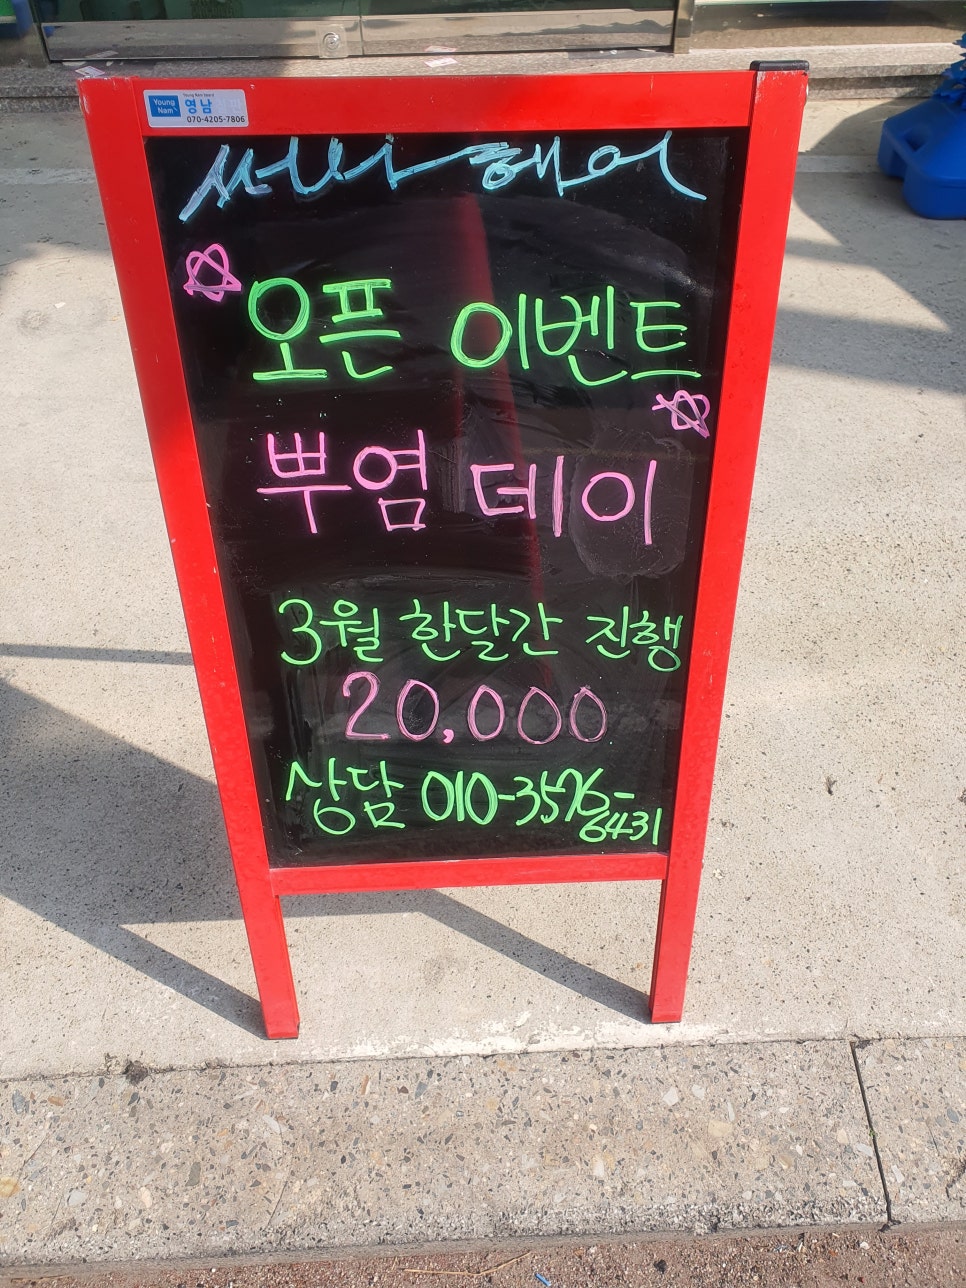 Young Nam board
Young Nam
영남
070-4205-7806
써니헤어
오픈 이벤트
뿌염 데이
3월 한달간 진행
20,000
상담 010-3576-
6431